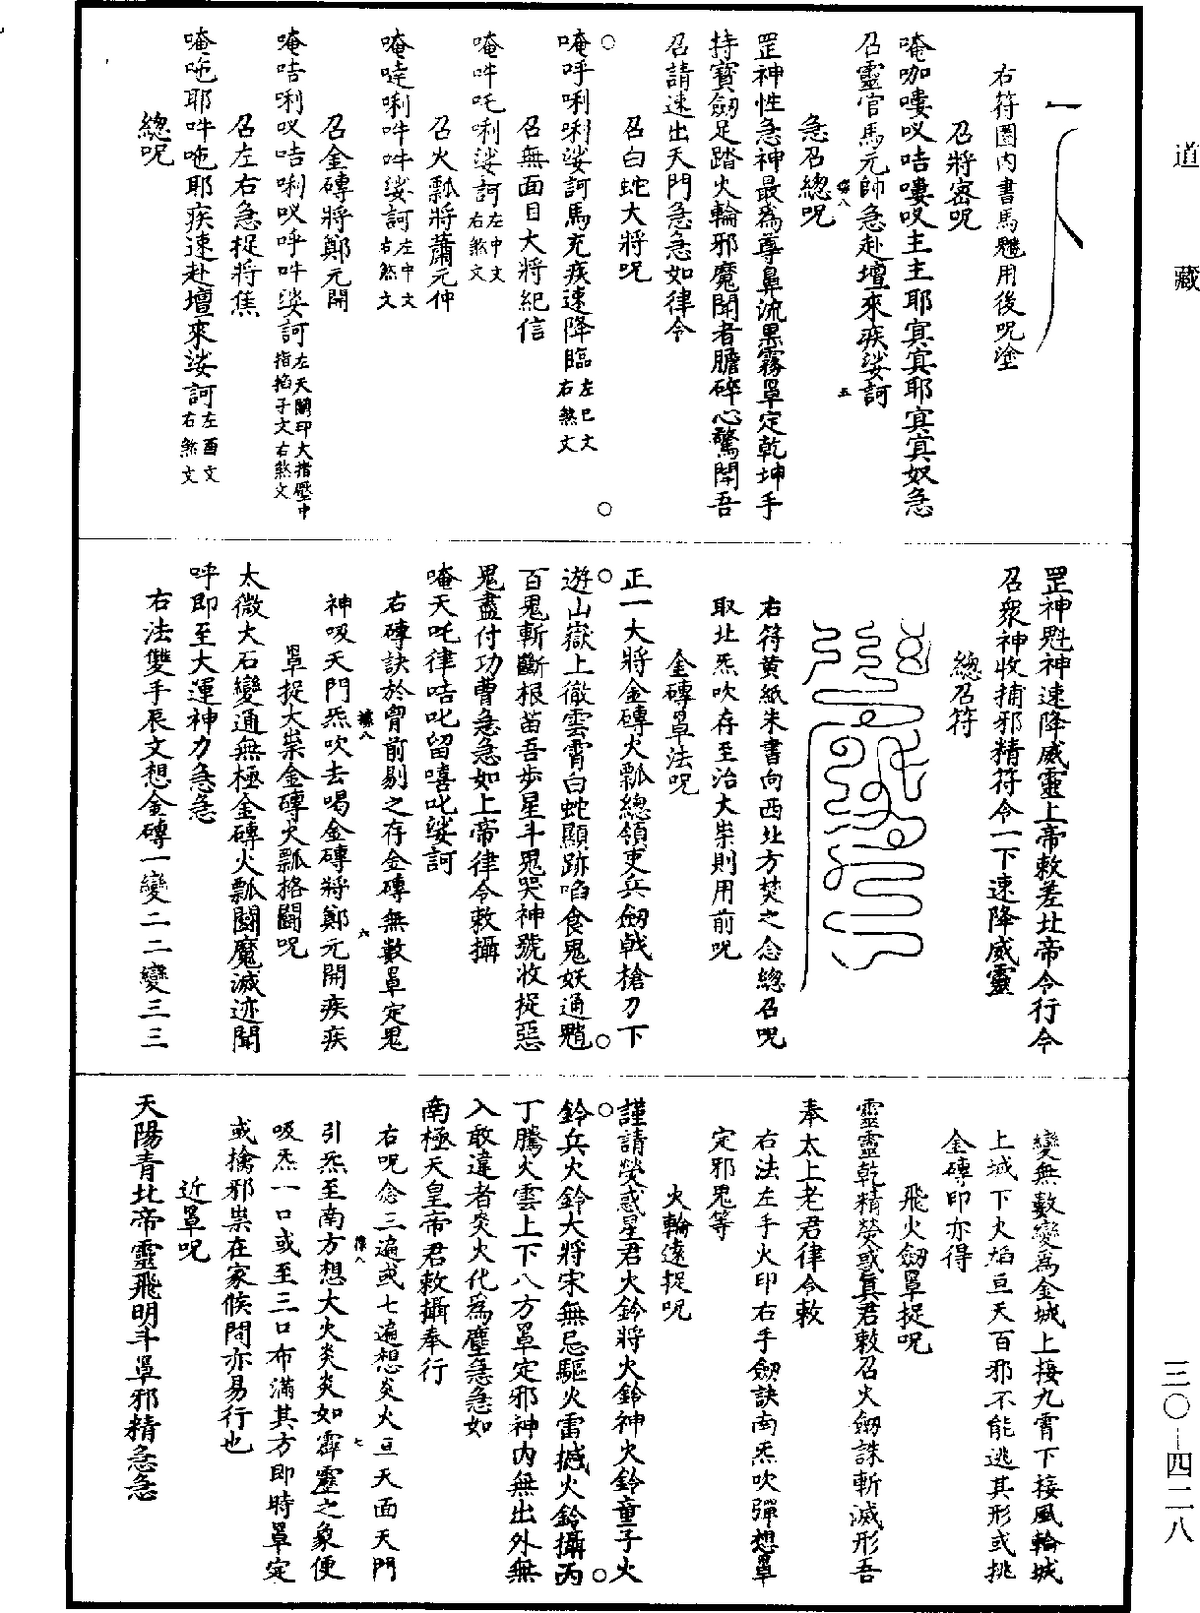 道藏
右符圈内書馬魈用後呪塗
召將密呪
唵咖嘍㕛咭嘍㕛主主耶寘寘耶寘寘奴急
召靈官馬元帥急赴壇來疾娑訶
急召總呪
罡神性急神最為尊鼻流黑霧罩定乾坤手
持寶劒足踏火輪邪魔聞者膽碎心驚聞吾
召請速出天門急急如律令
召白蛇大將呪
唵呼唎唎娑訶馬充疾速降臨左巳文右煞文
召無面目大將紀信
唵吽吒唎娑訶左中文右煞文
召火瓢將蕭元仲
唵㗌唎吽吽娑訶左中文右煞文
召金磚將鄭元開
唵咭唎㕛咭唎㕛呼吽娑訶左天關印大指壓中指掐子文右煞文
召左右急捉將焦
唵𠲔耶吽𠲔耶疾速赴壇來娑訶左酉文右煞文
總呪
罡神魁神速降威靈上帝敕差北帝令行令
召衆神收捕邪精符令一下速降威靈
總召符
右符黄紙朱書向西北方焚之念總召呪
取北炁吹存至治大祟則用前呪
金磚罩法呪
正一大將金磚火瓢總領吏兵劒戟槍刀下
遊山嶽上徹雲霄白蛇顯跡啗食鬼妖通魈
百鬼斬斷根苗吾歩星斗鬼哭神號收捉惡
鬼盡付功曹急急如上帝律令敕攝
唵天吒律咭叱留嘻叱娑訶
右磚訣於胷前剔之存金磚無數罩定鬼
神吸天門炁吹去喝金磚將鄭元開疾疾
罩捉大祟金磚火瓢格鬬呪
太微大石變通無極金磚火瓢鬬魔滅迹聞
呼即至大運神力急急
右法雙手辰文想金磚一變二二變三三
變無數變為金城上接九霄下接風輪城
上城下火焰亘天百邪不能逃其形或挑
金磚印亦得
飛火劒罩捉呪
靈靈乾精熒惑真君敕召火劒誅斬滅形吾
奉太上老君律令敕
右法左手火印右手劒訣南炁吹彈想罩
定邪鬼等
火輪遠捉呪
謹請熒惑星君火鈴將火鈴神火鈴童子火
鈴兵火鈴大將宋無忌驅火雷撼火鈴攝丙
丁騰火雲上下八方罩定邪神内無出外無
入敢違者炎火化為塵急急如
南極天皇帝君敕攝奉行
右呪念三遍或七遍想炎火亘天面天門
引炁至南方想大火炎炎如霹靂之象便
吸炁一口或至三口布滿其方即時罩定
或擒邪祟在家候問亦易行也
近罩呪
天陽青北帝靈飛明斗罩邪精急急
三〇—四二八